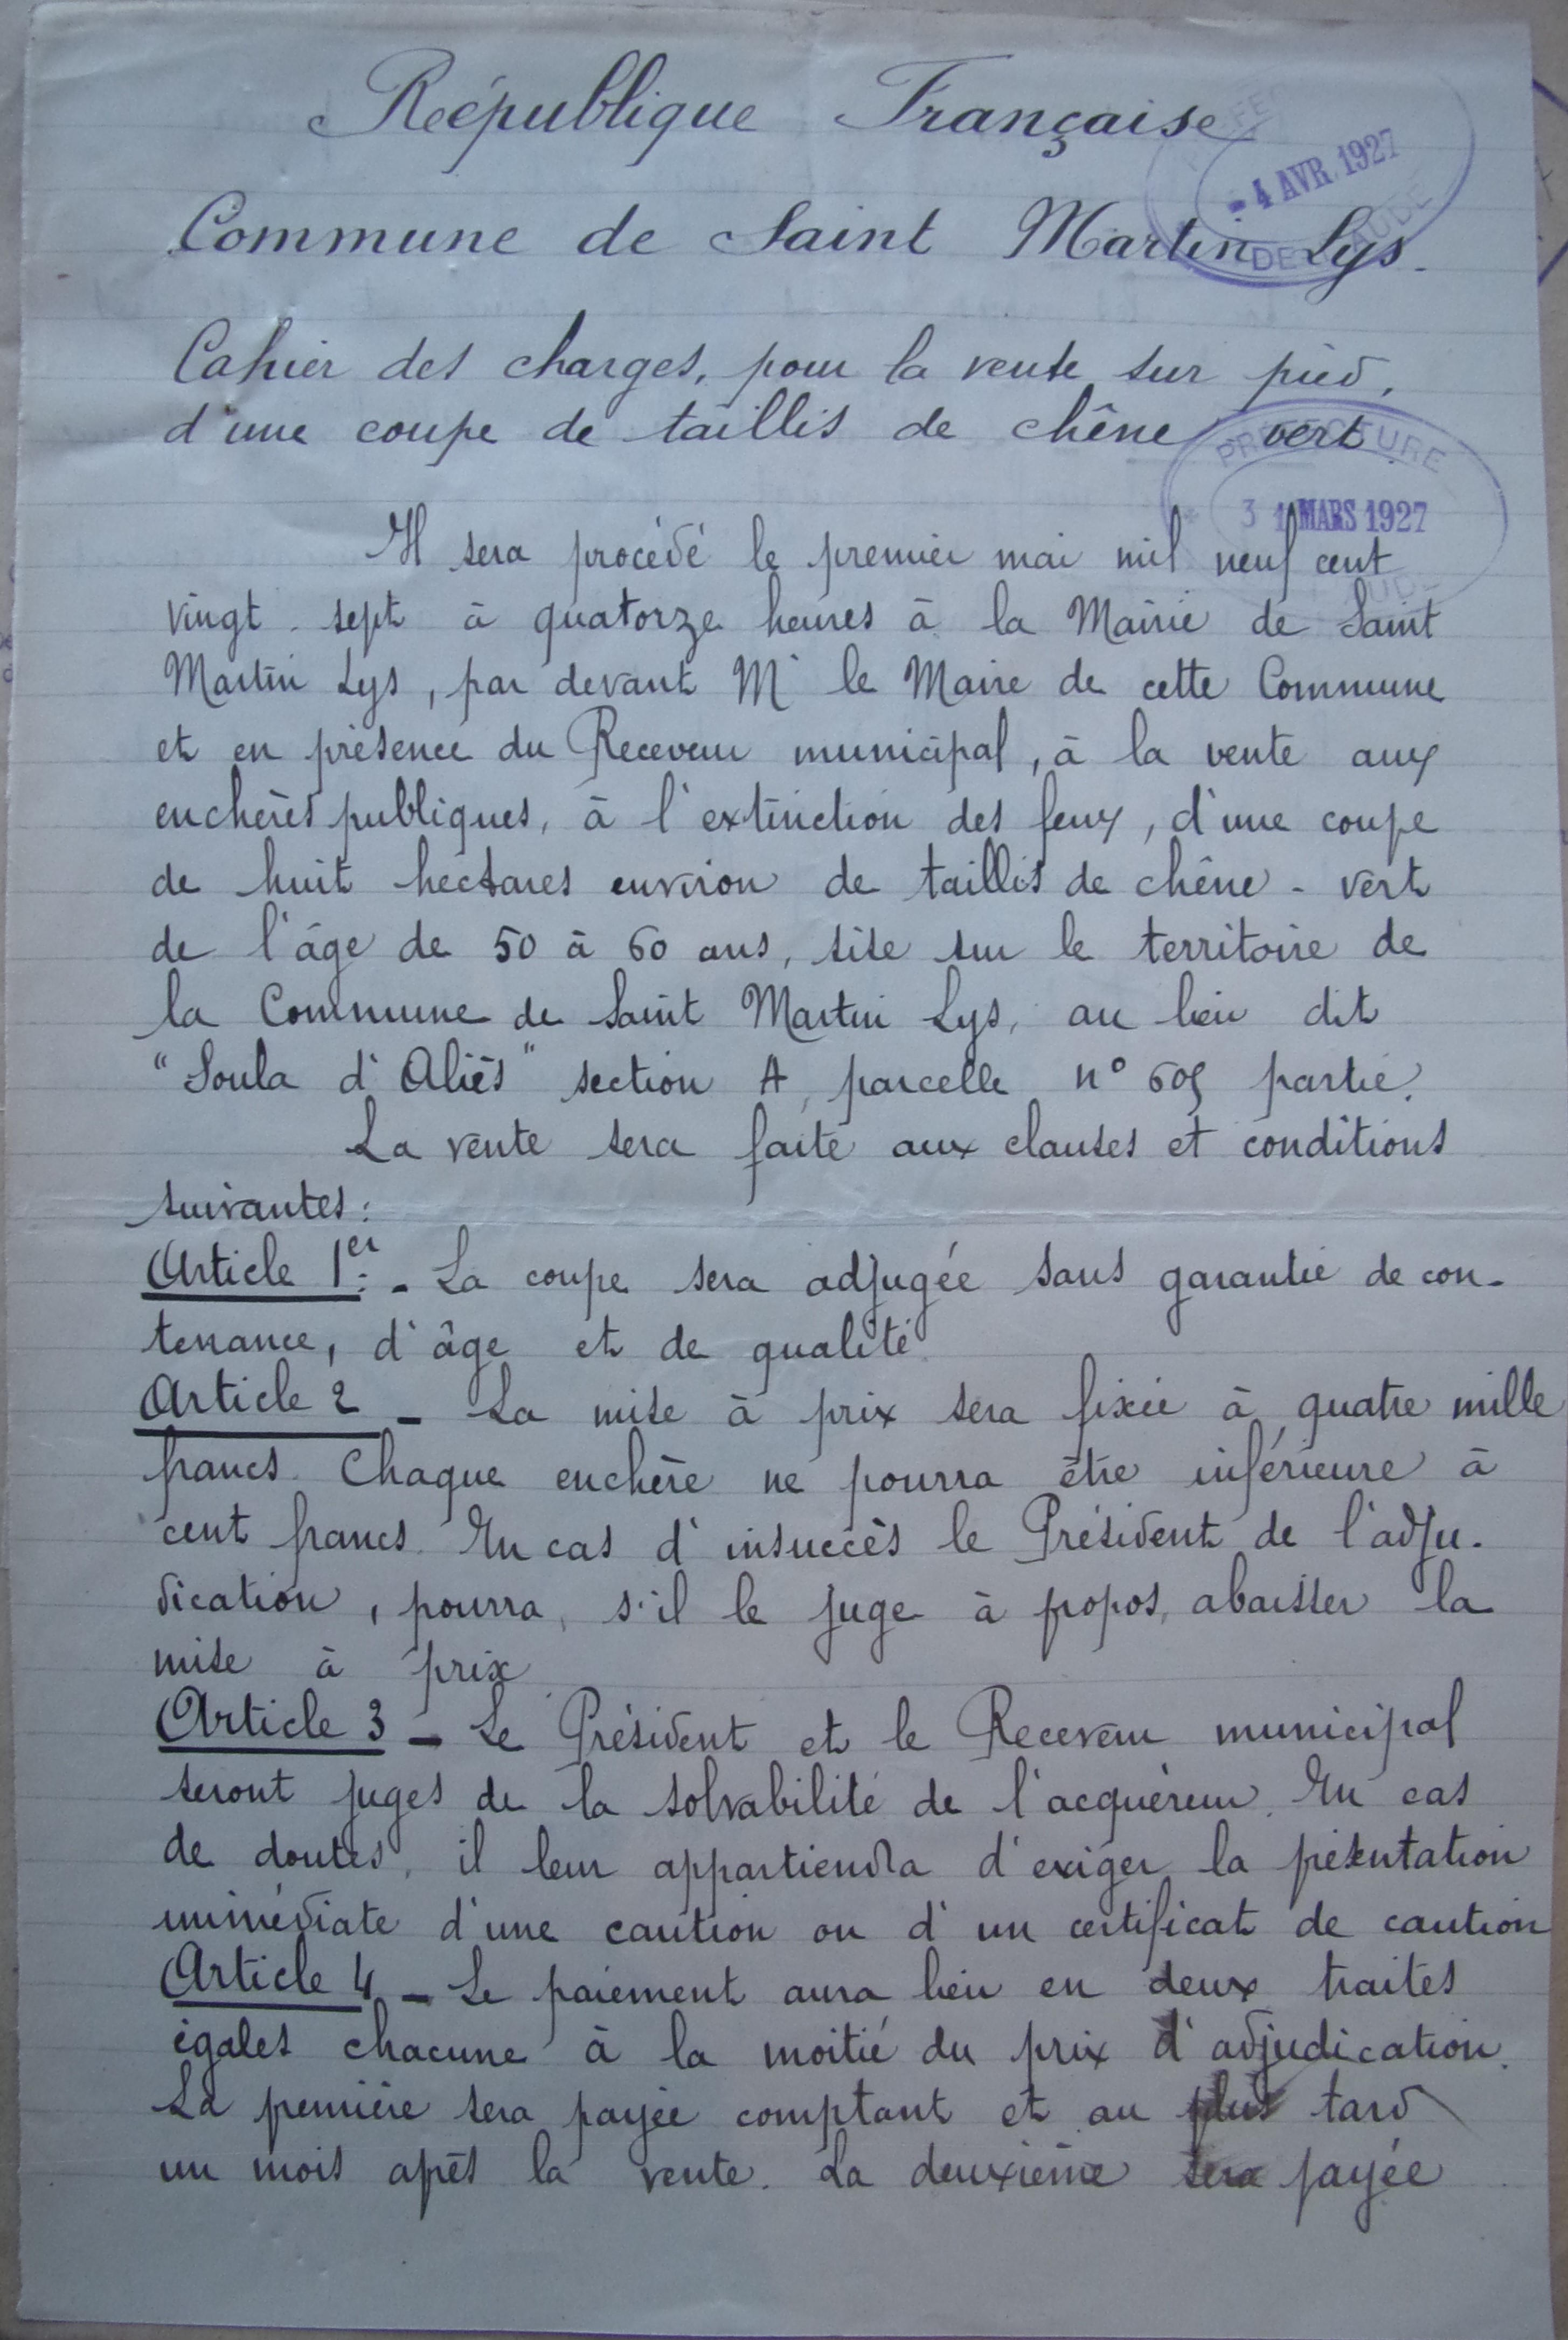 République Française
PREFECTURE
- 4 AVR. 1927
DE L'AUDE
Commune de Saint Martin Lys.
Cahier des charges, pour la vente sur pied,
d'une coupe de taillis de chêne vert.
PREFECTURE
31 MARS 1927
Il sera procédé le premier mai mil neuf cent
vingt-sept à quatorze heures à la Mairie de Saint
Martin Lys, par devant Mr le Maire de cette Commune
et en présence du Receveur municipal, à la vente aux
enchères publiques, à l'extinction des feux, d'une coupe
de huit hectares environ de taillis de chêne-vert
de l'âge de 50 à 60 ans, sise sur le territoire de
la Commune de Saint Martin Lys, au lieu dit
"Soula d'Aliès" section A, parcelle n° 605 partie.
La vente sera faite aux clauses et conditions
suivantes:
Article 1er. - La coupe sera adjugée sans garantie de con-
tenance, d'âge et de qualité.
Article 2 - La mise à prix sera fixée à quatre mille
francs. Chaque enchère ne pourra être inférieure à
cent francs. En cas d'insuccès le Président de l'adju-
dication, pourra, s'il le juge à propos, abaisser la
mise à prix.
Article 3 - Le Président et le Receveur municipal
seront juges de la solvabilité de l'acquéreur. En cas
de doutes, il leur appartiendra d'exiger la présentation
immédiate d'une caution ou d'un certificat de caution
Article 4 - Le paiement aura lieu en deux traites
égales chacune à la moitié du prix d'adjudication.
La première sera payée comptant et au plus tard
un mois après la vente. La deuxième sera payée